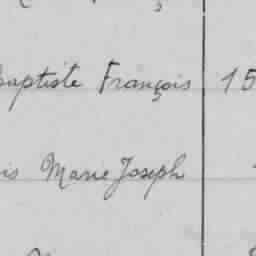 Baptiste François 15
is Marie Joseph